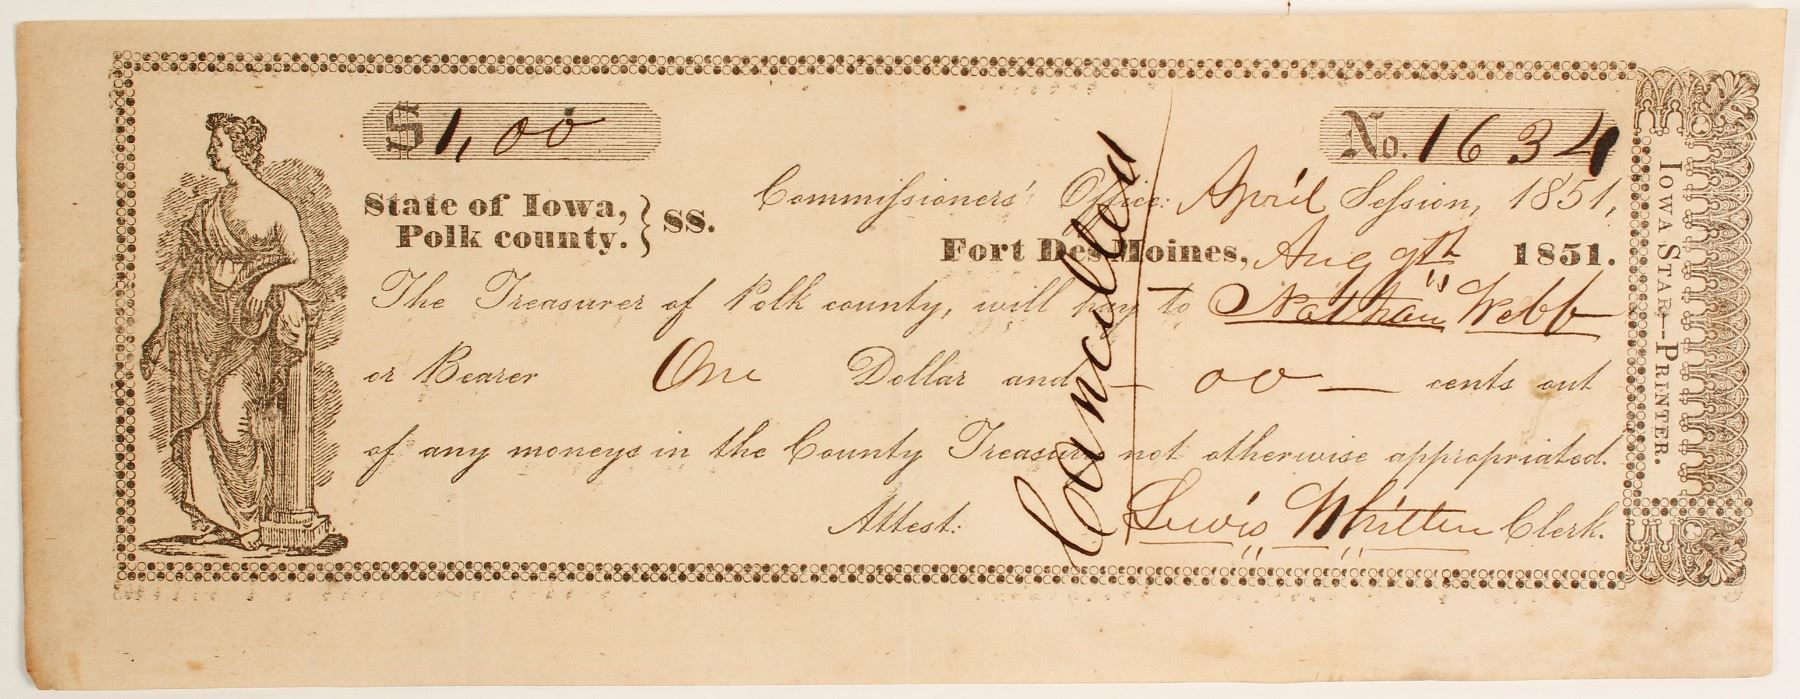 $ 1,00
No. 1634
State of Iowa, } SS.
Polk county.
Commissioners' Office: April Session, 1851,
Fort Des Moines, Aug 9th 1851.
The Treasurer of Polk county, will pay to Nathan Webb
or Bearer One Dollar and — 00 — cents out
of any moneys in the County Treasury not otherwise appropriated.
Attest: Lewis Whitten Clerk.
Cancelled
Iowa Star—Printer.